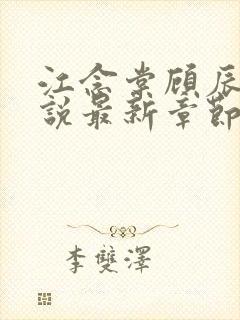 江念棠顾辰
説最新章節
李雙澤